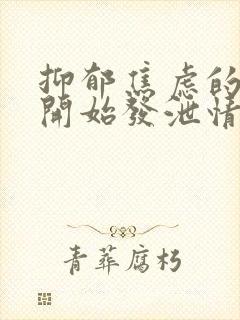 抑郁焦虑的
開始發泄情
青葬腐朽